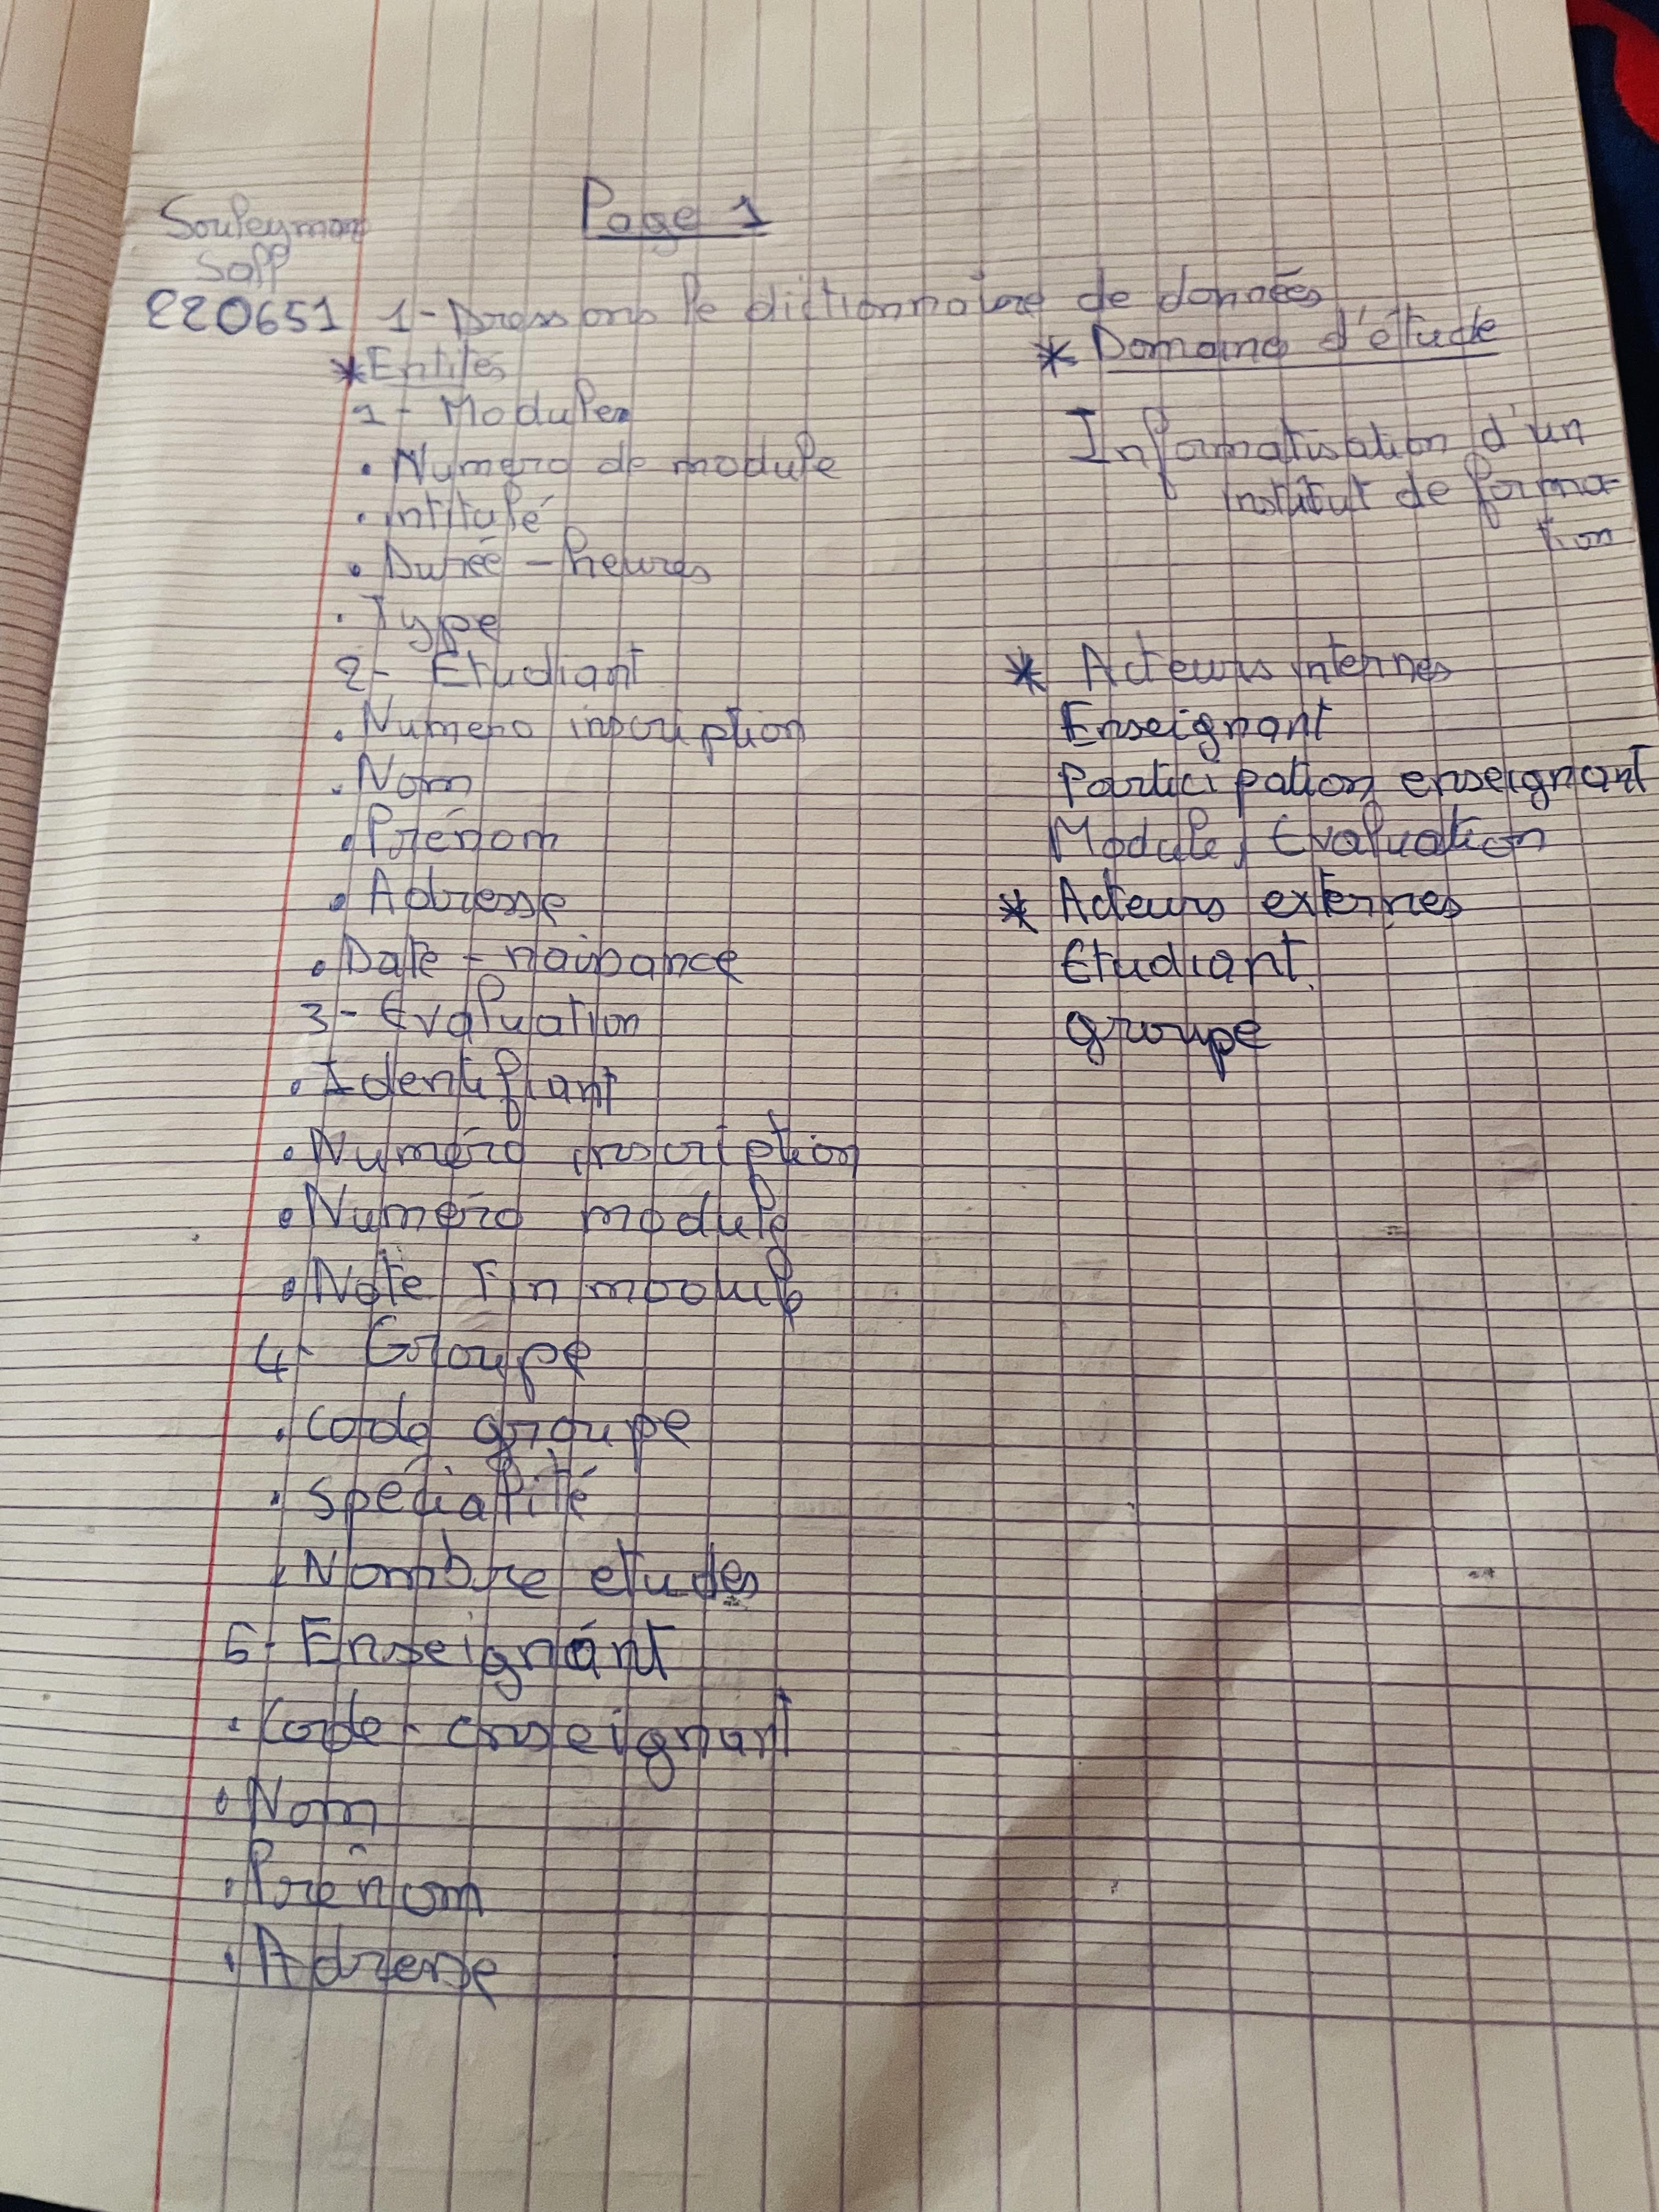 Page 1
Souleyman
Sall
220651
1- Dressons le dictionnaire de données
* Entités
1- Module
. Numero de module
. intitulé
. Durée - heures
. Type
2- Etudiant
. Numero inscription
. Nom
. Prénom
. Adresse
. Date - naissance
3- Evaluation
. Identifiant
. Numéro inscription
. Numéro module
. Note Fin module
4- Groupe
. code groupe
. Spécialité
. Nombre etudes
5- Enseignant
. Code - enseignant
. Nom
. Prénom
. Adresse
* Domaine d'étude
Informatisation d'un
institut de forma-
tion
* Acteurs internes
Enseignant
Participation enseignant
Module, Evaluation
* Acteurs externes
Etudiant
groupe